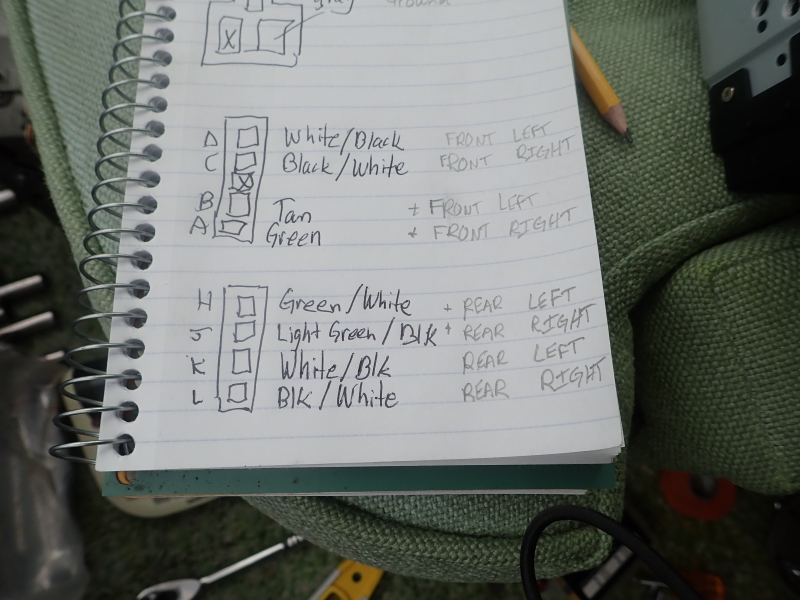 Ground
X
D White/Black FRONT LEFT
C Black/White FRONT RIGHT
X
B Tan + FRONT LEFT
A Green + FRONT RIGHT
H Green/White + REAR LEFT
J Light Green/Blk + REAR RIGHT
K White/Blk REAR LEFT
L Blk/White REAR RIGHT